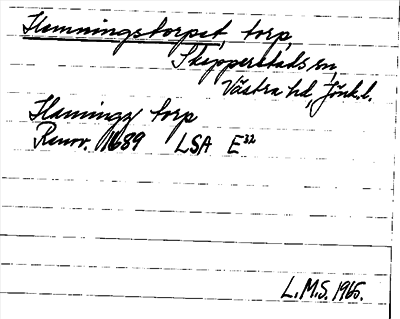 Hemningstorpet, torp,
Skepperstads sn,
Västra hd, Jönk.l.
Hemningz torp
Renov. 1689 LSA E32
L.M.S. 1965.